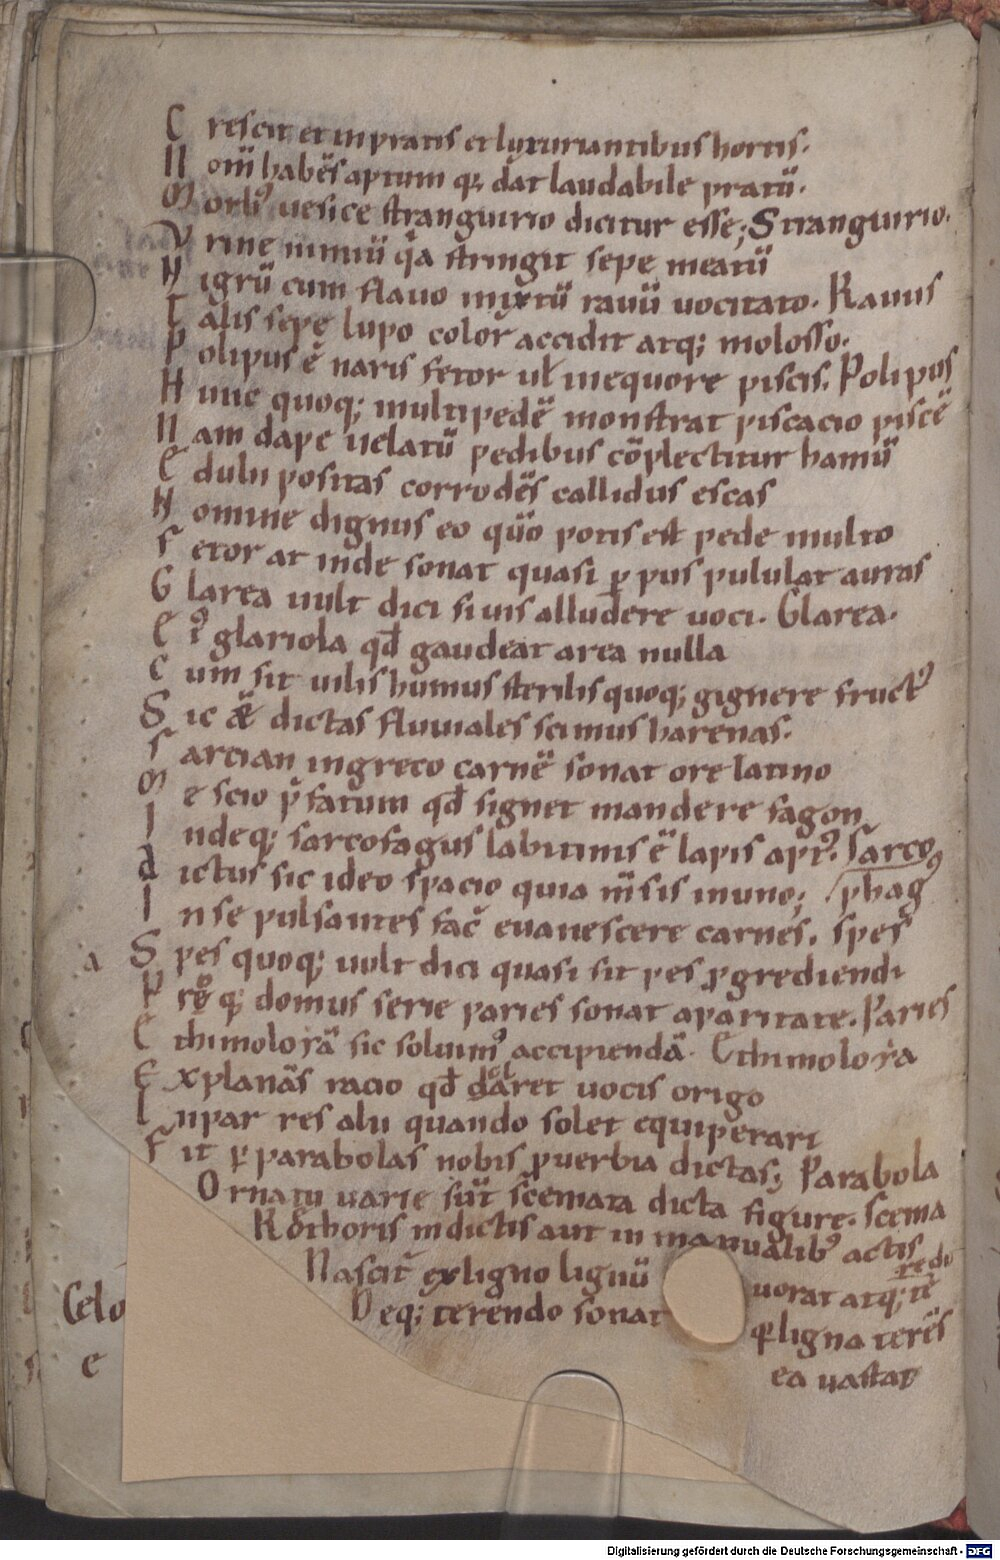 C rescit et in pratis et luxuriantibus hortis.
N om̄ habēs aptum q; dat laudabile pratū.
M orbꝰ uesice stranguirio dicitur esse; Stranguirio.
V rine nimiū q̇a stringit sepe meatū
N igrū cum flauo mixtū rauū uocitato. Rauus
T alis sepe lupo color accidit atq; molosso.
P olipus ē naris fetor ul̄ inequore piscis. Polipos
H unc quoq; multipedē monstrat piscacio piscē
N am dape uelatū pedibus cōplectitur hamū
E dulii positas corrodēs callidus escas
N omine dignus eo quo potis est pede multo
F etor at inde sonat quasi ꝑ pus pululat auras
G larea uult dici si uis alludere uoci. Glarea.
E t̉ glariola qđ gaudeat area nulla
C um sit uilis humus sterilis quoq; gignere fructꝰ
S ic & dictas fluuiales scimus harenas.
S arcian in greco carnē sonat ore latino
M e scio p̄fatum qđ signet mandere fagon
I ndeq; sarcofagus labitinis ē lapis apt̉. Sarco
d ictus sic ideo spacio quia m̄sis in uno; phagꝰ
I n se pulsantes fac̄ euanescere carnes. spes
S pes quoq; uult dici quasi sit pes ꝓgrediendi
P roq; domus serie paries sonat aparitate. Paries
E thimoloyā sic soluimꝰ accipiendā. Ethimoloya
E xplanās racio qđ daret uocis origo
I npar res alii quando solet equiperari
F it ꝑ parabolas nobis ꝓuerbia dictas; Parabola
O rnatu uarie sūt scemata dicta figure. Scema
R &thoris in dictis aut in manualibꝰ actis
Nascit̄ ex ligno lignū uorat atq; te redo
Deq; terendo sonat q ligna terēs
ea uastat
a
Celo
e
Digitalisierung gefördert durch die Deutsche Forschungsgemeinschaft - DFG